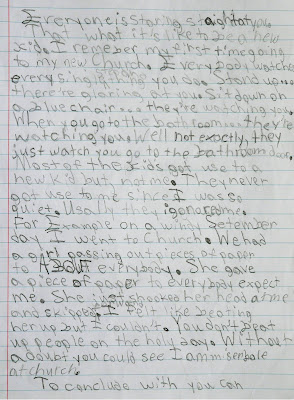 Everyone is staring straight at you.
That what it's like to be a new
kid. I remeber my first time going
to my new Church. Everybody watches
every single thing you do. Stand up...
there're gloring at you. Sit down on
a blue chair... they're watching you.
When you go to the bathroom... they're
watching you. Well not exactly, they
just watch you go to the bathroom door.
Most of the kids got use to a
new kid but not me. They never
got use to me since I was so
quiet. Usally they igonore me.
For Example on a windy Setember
day I went to Church. We had
a girl passing out pieces of paper
to ABOUT everybody. She gave
a piece of paper to everybody expect
me. She just shooked her head at me
and skipped. I felt like beating
her up but I couldn't. You don't beat
up people on the holy day. Without
a doubt you could see I am miserbole
at church.
To conclude with you can